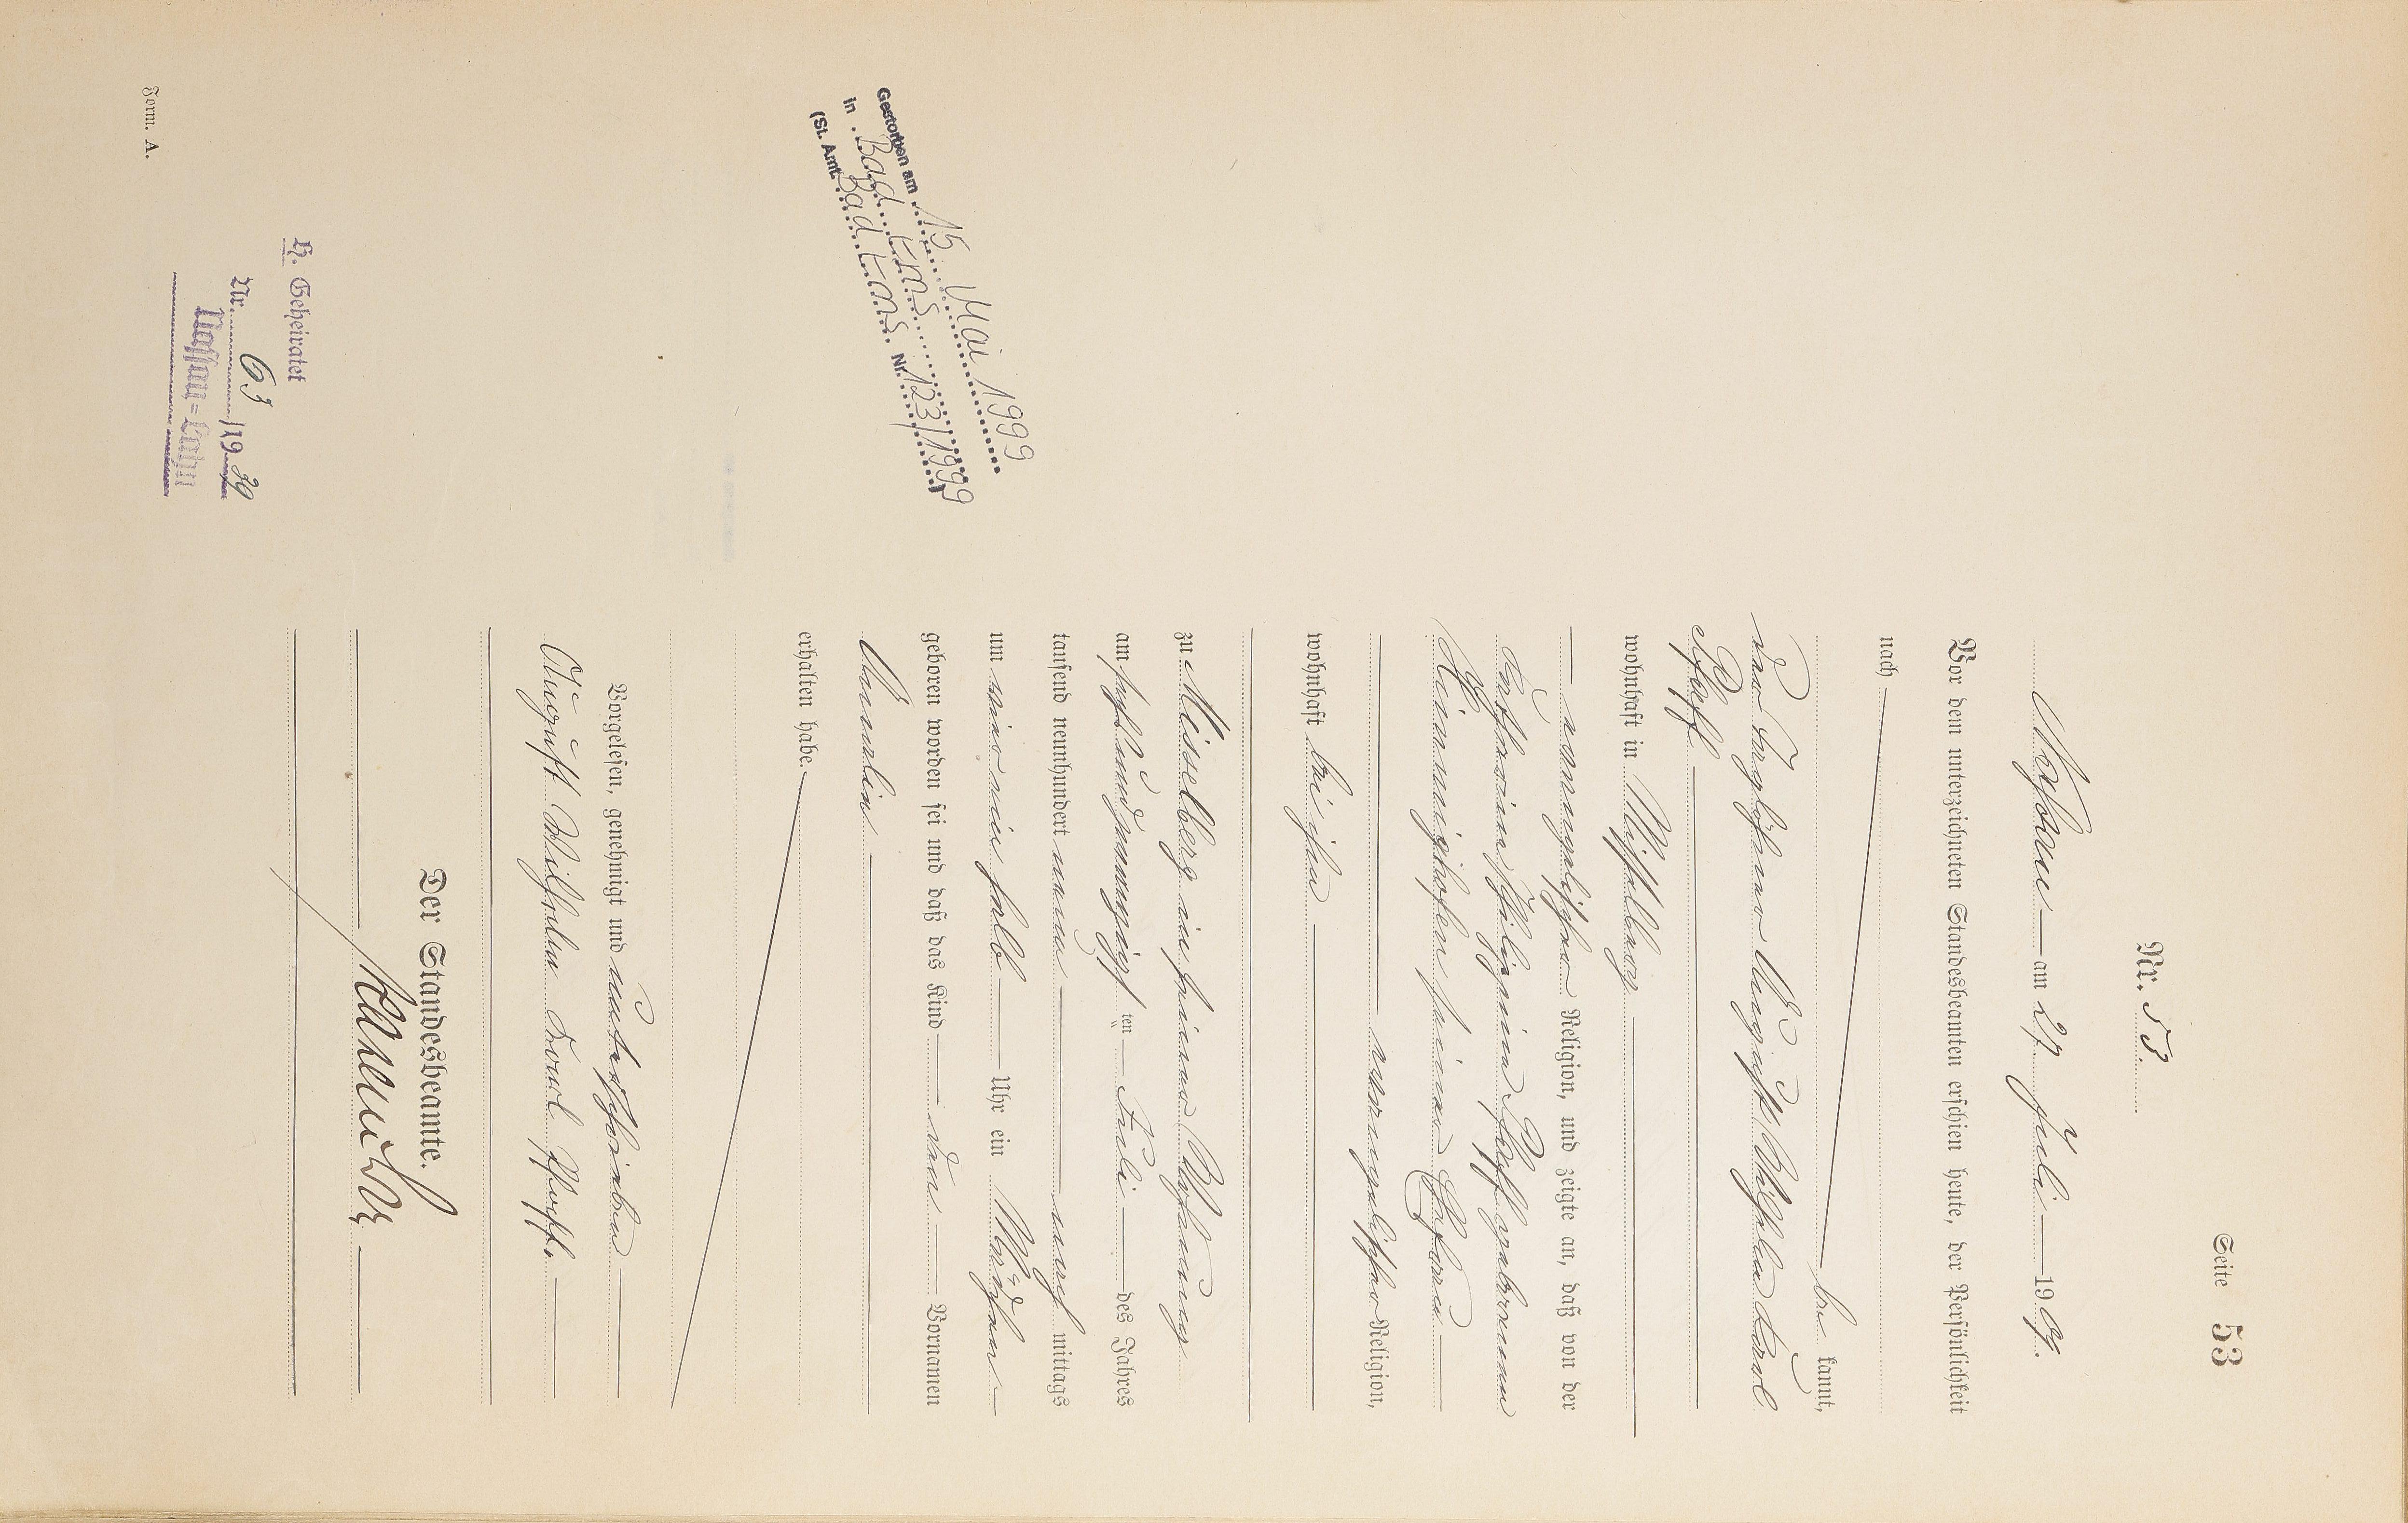 Seite 53
Nr. 53.
Nassau am 27 Juli 1909.
Vor dem unterzeichneten Standesbeamten erschien heute, der Persönlichkeit
nach
be kannt,
der Taglöhner August Wilhelm Karl
Pfaff
wohnhaft in Misselberg
evangelischer Religion, und zeigte an, daß von der
Katharine Philippine Pfaff geborenen
Himmighofen seiner Ehefrau
evangelischer Religion,
wohnhaft bei ihm
zu Misselberg in seiner Wohnung
am sechsundzwanzigsten Juli des Jahres
tausend neunhundert neun nach mittags
um vier ein halb Uhr ein Mädchen
geboren worden sei und daß das Kind den Vornamen
erhalten habe.
Vorgelesen, genehmigt und unterschrieben
August Wilhelm Karl Pfaff.
Der Standesbeamte.
Gestorben am 15. Mai 1999
in Bad Ems
(St. Amt. Bad Ems Nr. 123/1999)
H. Geheiratet
Nr. 63 /1939
Nassau=Lahn
Form. A.